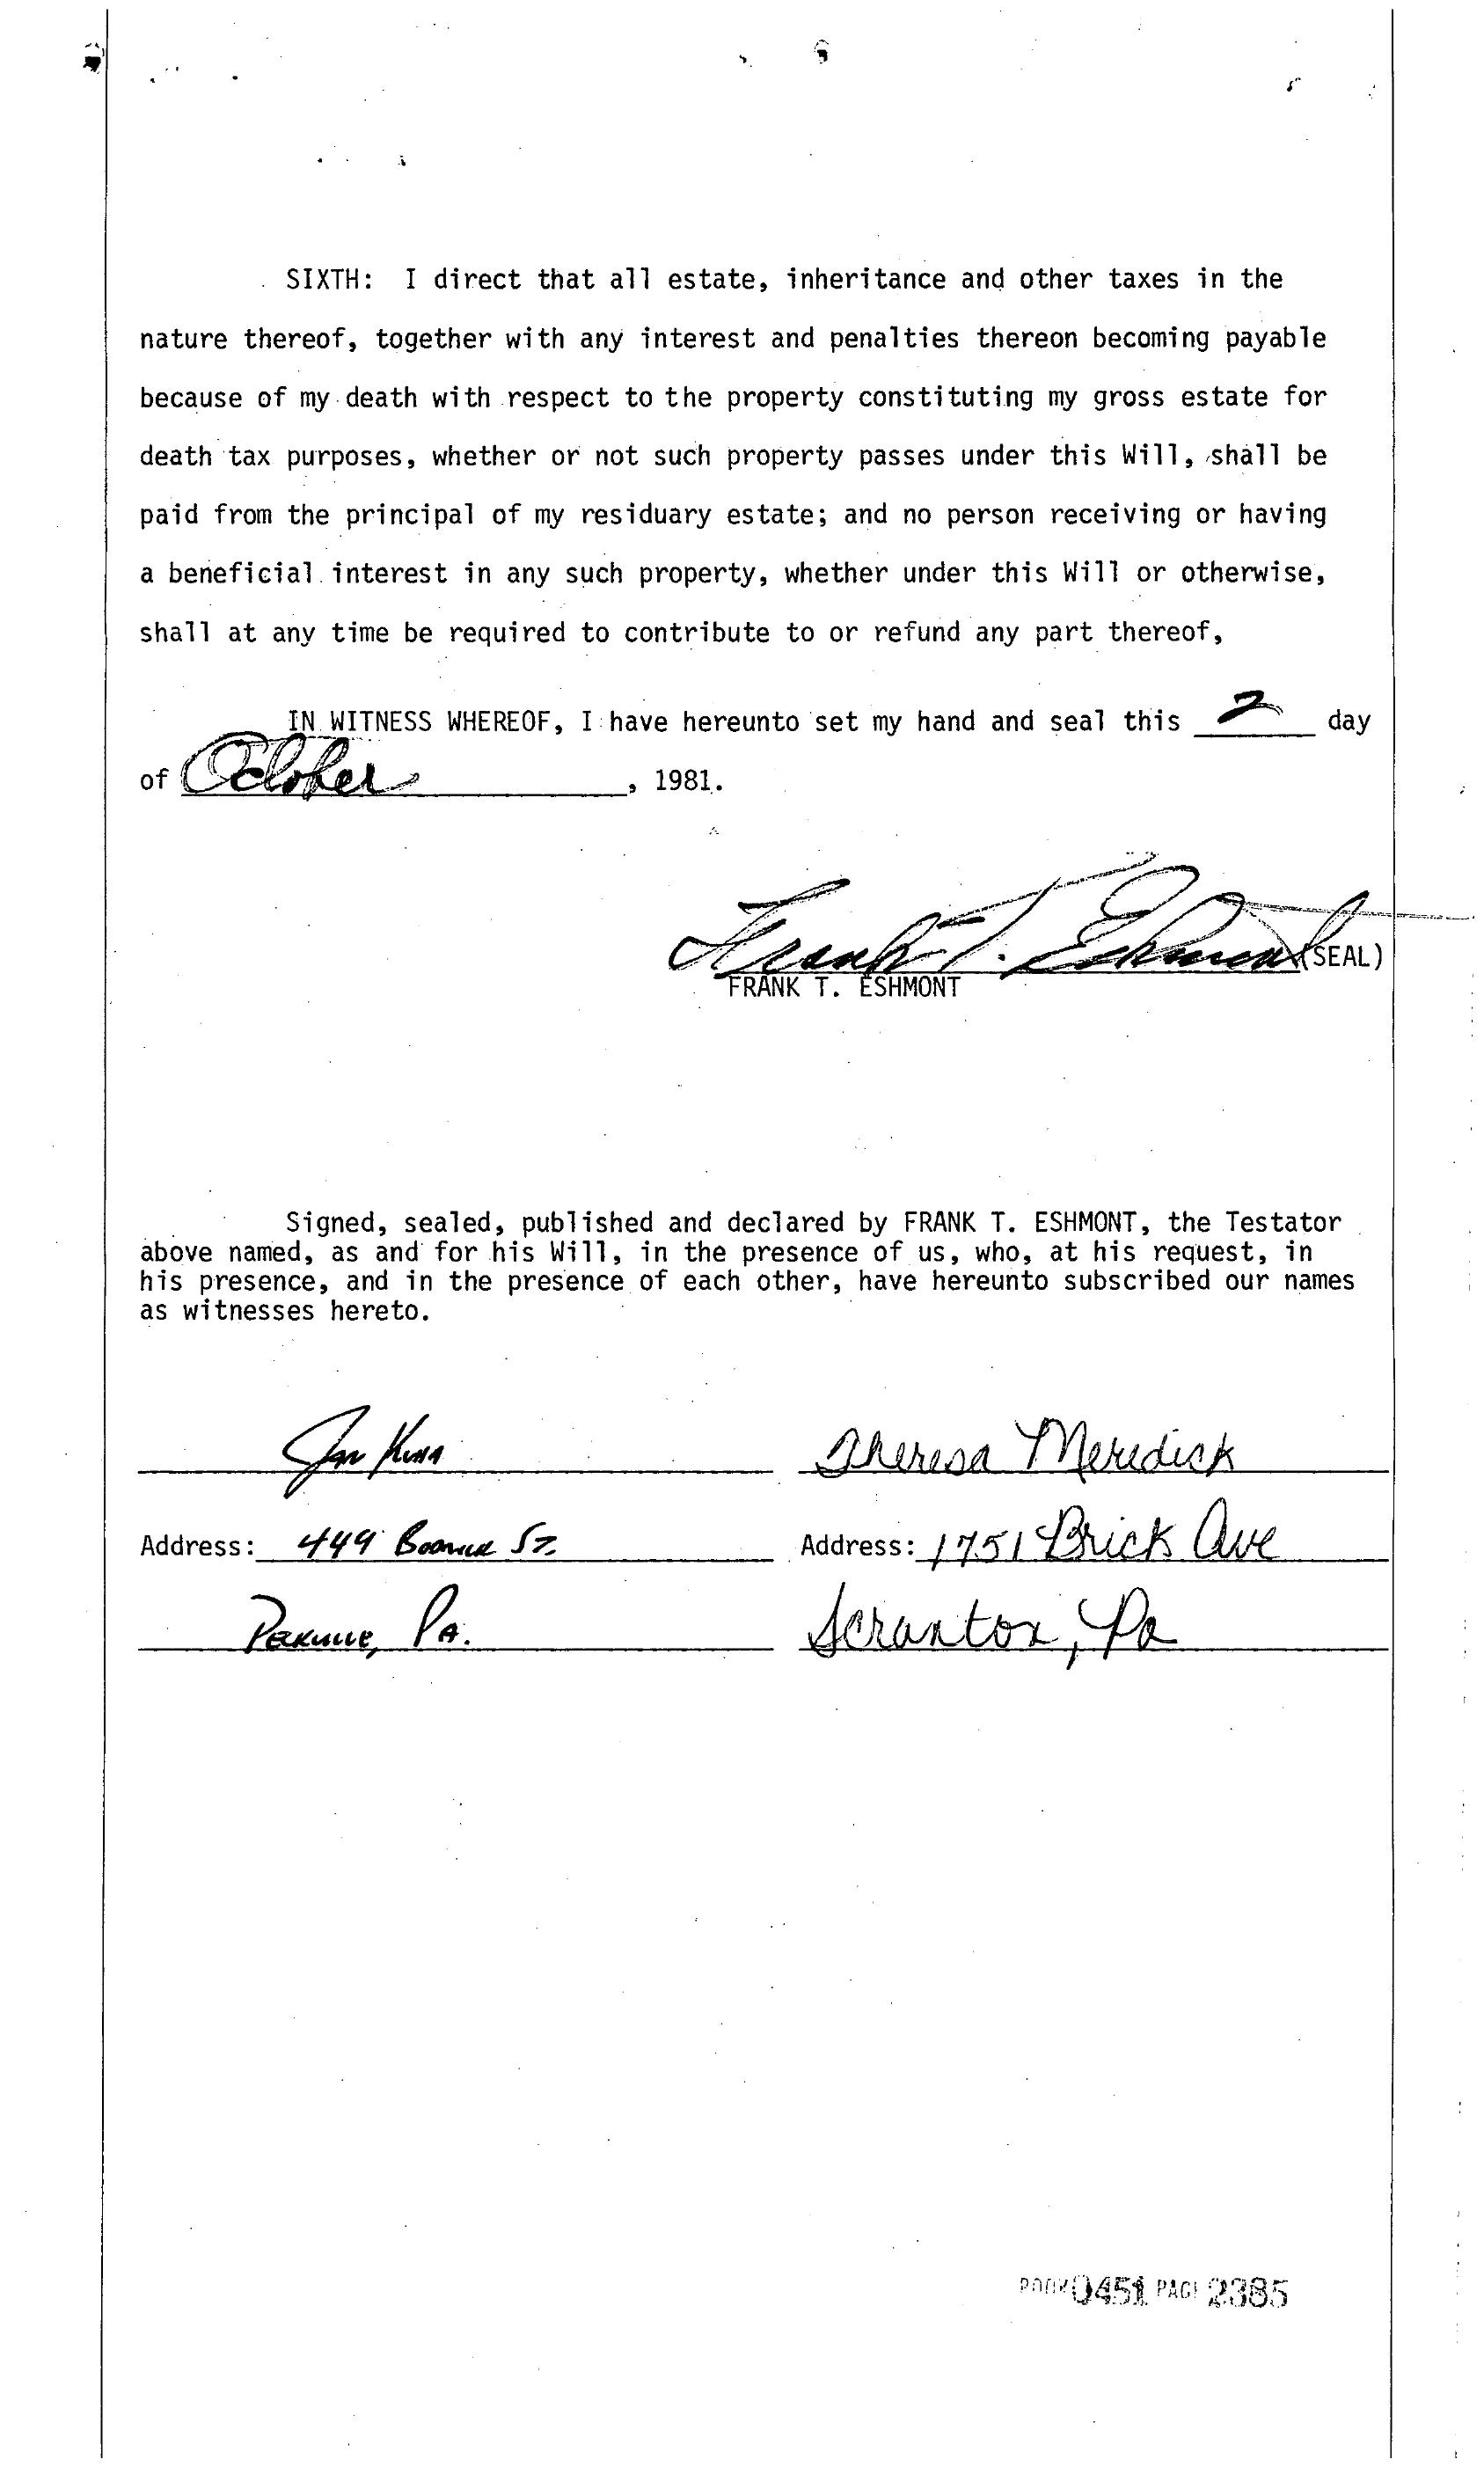 SIXTH: I direct that all estate, inheritance and other taxes in the
nature thereof, together with any interest and penalties thereon becoming payable
because of my death with respect to the property constituting my gross estate for
death tax purposes, whether or not such property passes under this Will, shall be
paid from the principal of my residuary estate; and no person receiving or having
a beneficial interest in any such property, whether under this Will or otherwise,
shall at any time be required to contribute to or refund any part thereof,
IN WITNESS WHEREOF, I have hereunto set my hand and seal this 2 day
of October, 1981.
Frank T. Eshmont (SEAL)
FRANK T. ESHMONT
Signed, sealed, published and declared by FRANK T. ESHMONT, the Testator
above named, as and for his Will, in the presence of us, who, at his request, in
his presence, and in the presence of each other, have hereunto subscribed our names
as witnesses hereto.
Theresa Meredick
Address: 449 St. Address: 1751 Brick Ave
Pa. Scranton, Pa
BOOK 0451 PAGE 2385